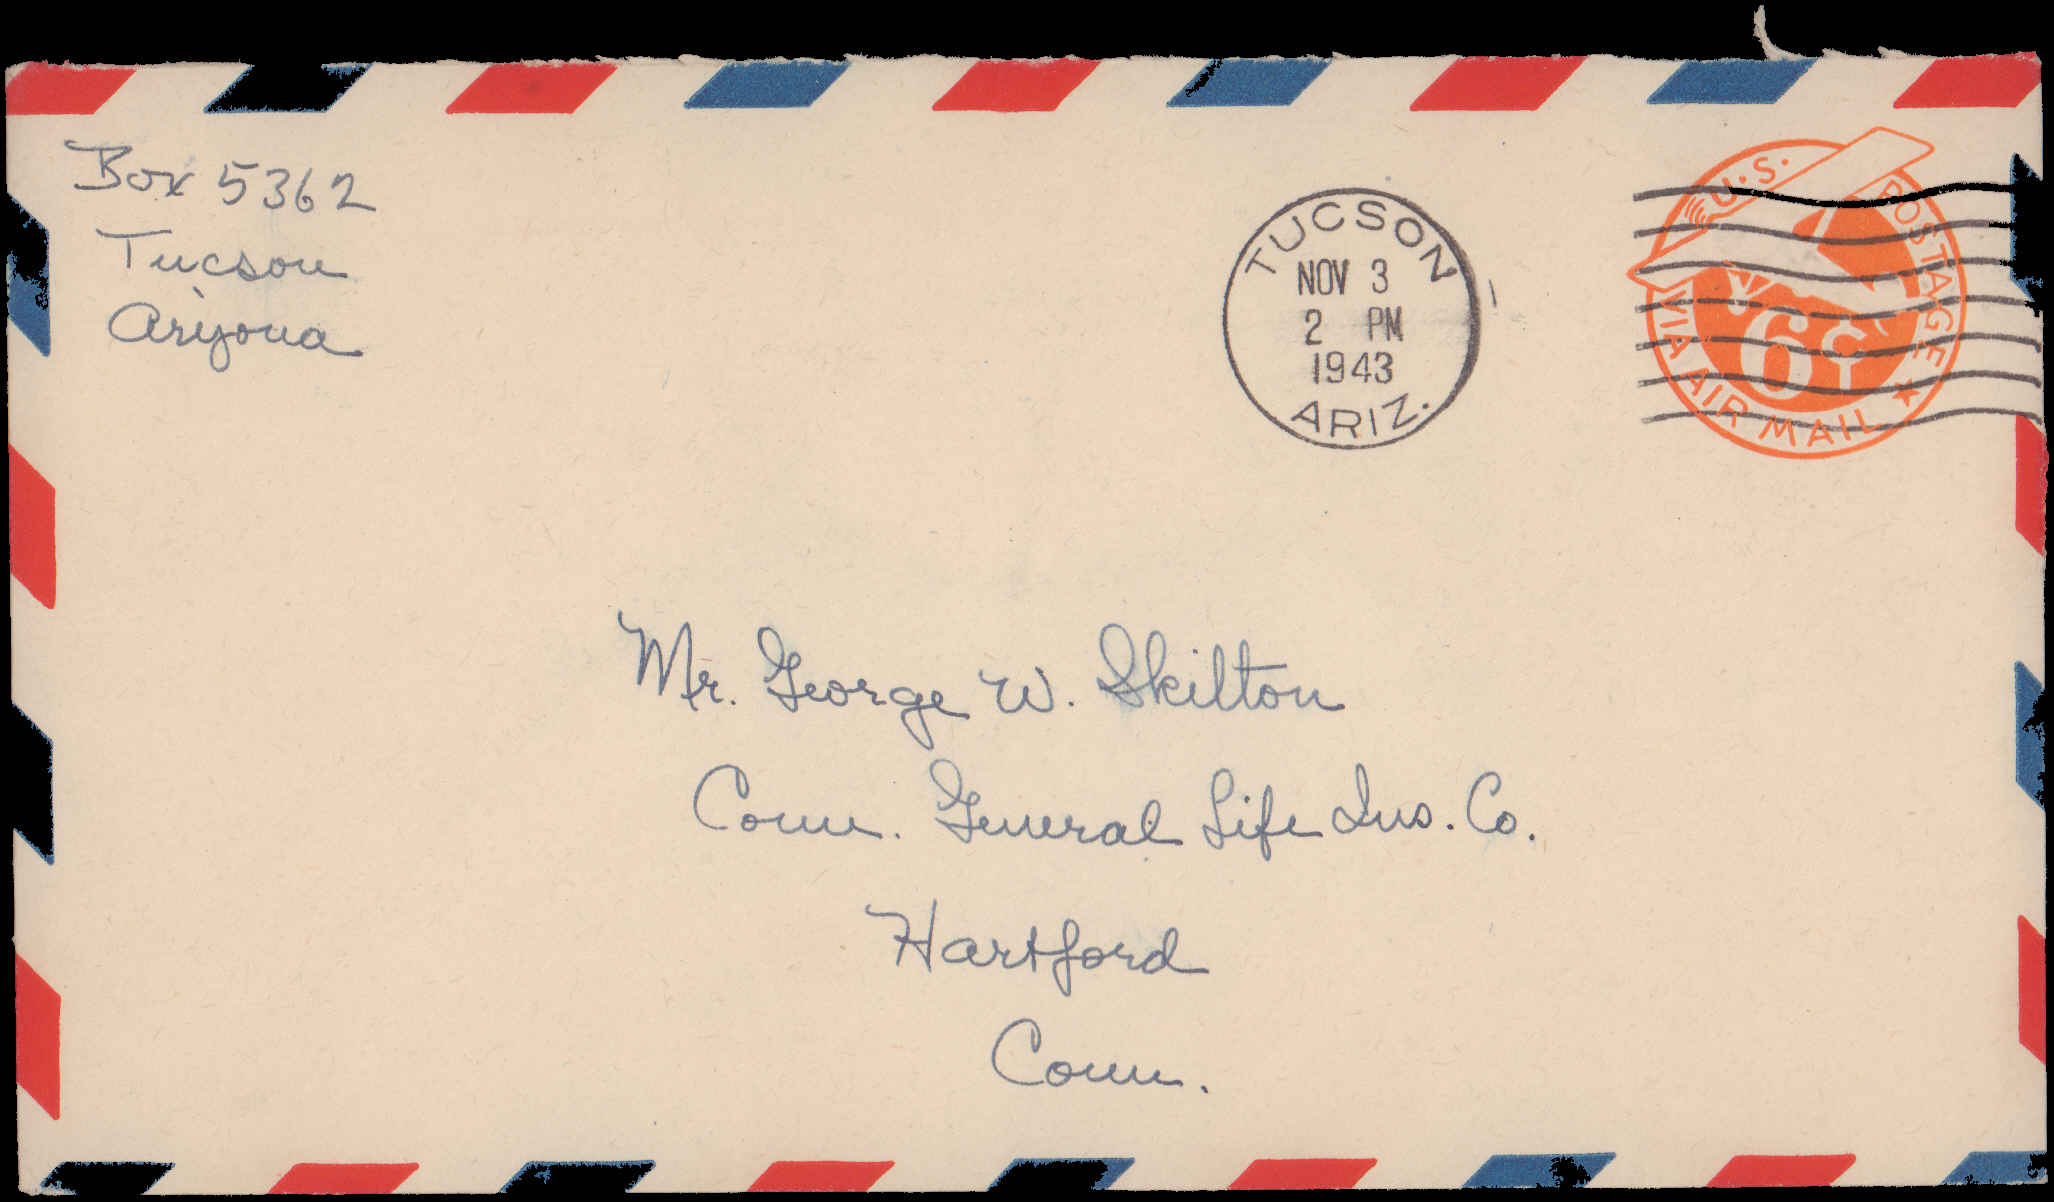 Box 5362
Tucson
Arizona
TUCSON
NOV 3
2 PM
1943
ARIZ.
U.S. POSTAGE
6¢
VIA AIR MAIL
Mr. George W. Skilton
Conn. General Life Ins. Co.
Hartford
Conn.